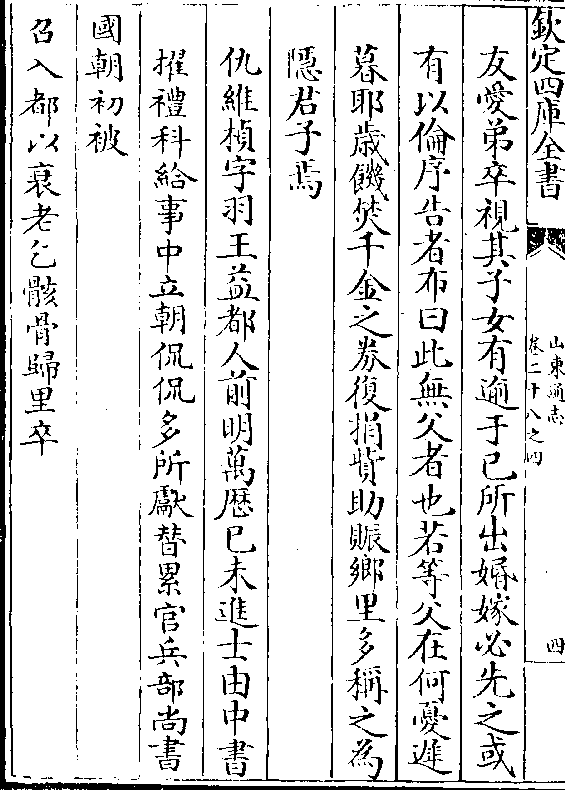 欽定四庫全書
山東通志
卷二十八之四
四
友愛弟卒視其子女有逾于己所出婚嫁必先之或
有以倫序告者布曰此無父者也若等父在何憂遲
暮耶歳饑焚千金之券復捐貲助賑鄉里多稱之為
隱君子焉
仇維楨字羽王益都人前明萬厯己未進士由中書
擢禮科給事中立朝侃侃多所獻替累官兵部尚書
國朝初被
召入都以衰老乞骸骨歸里卒